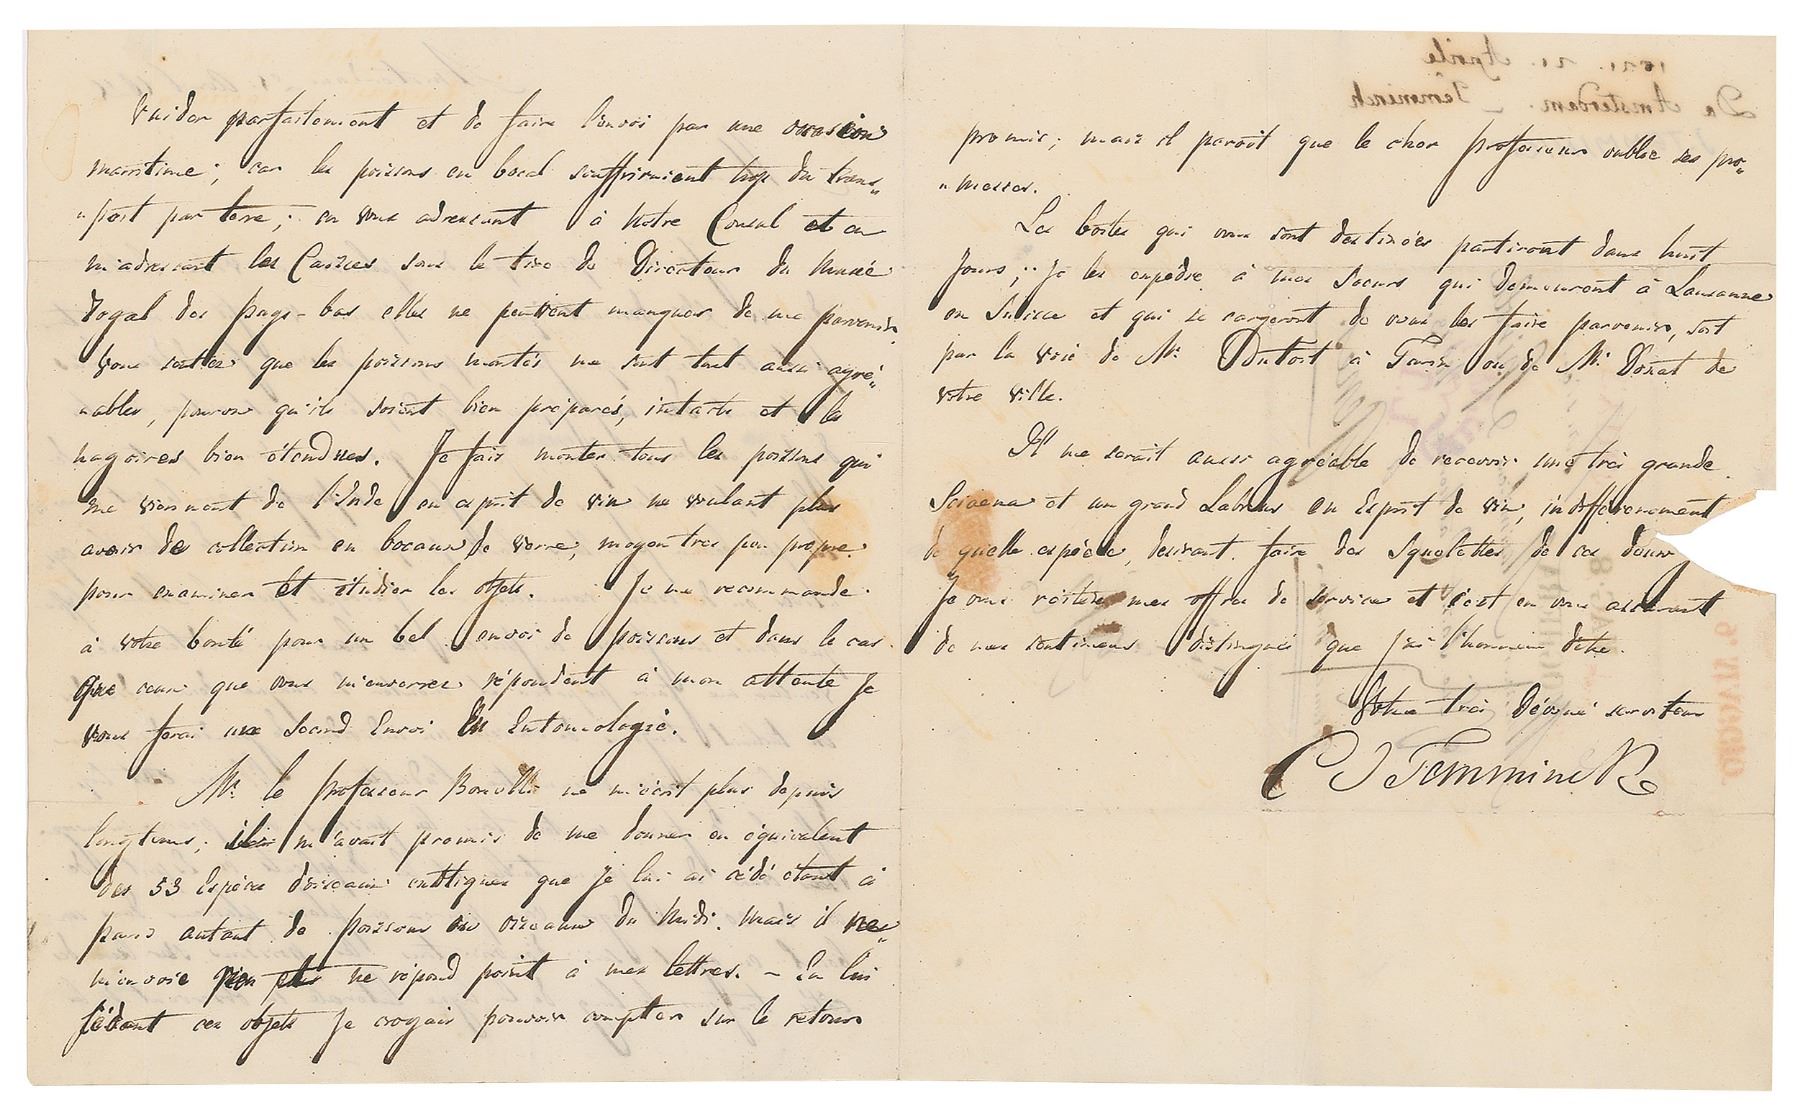 Vuider parfaitement et de faire l'envoi par une occasion
maritime; car les poissons en bocal souffriraient trop du trans„
„port par terre; en vous adressant à Notre Consul et en
m'adressant les Caisses sous le titre de Directeur du Musée
Rogal des Pays-bas elles ne peuvent manquer de me parvenir.
Vous sentez que les poissons montés me sont tout aussi agré„
„ables, pourvu qu'ils soient bien préparés, intacts et les
nagoires bien étendues. Je fais monter tous les poissons qui
me viennent de l'Inde en esprit de vin ne voulant plus
avoir de collection en bocaux de verre, moyen tres peu propre
pour examiner et étudier les objets. Je me recommande
à votre bonté pour un bel envoi de poissons et dans le cas
que ceux que vous m'enverrez répondent à mon attente Je
vous ferai un Second Envoi En Entomologie.
Mr. le Professeur Bonelli ne m'écrit plus depuis
longtems; il m'avait promis de me donner en équivalent
des 53 Espèces d'oiseaux exotiques que Je lui ai cédé étant à
paris autant de poissons ou oiseaux du Midi. Mais il ne„
m'envoie rien et ne répond point à mes lettres. – En lui
cédant ces objets Je croyais pouvoir compter sur le retour
promis; mais il paroit que le cher professeur oublie ses pro„
„messes.
Les boîtes qui vous sont destinées partiront dans huit
Jours; Je les expédie à mes Soeurs qui demeurent à Lausanne
en Suisse et qui se cargeront de vous les faire parvenir, soit
par la voie de Mr. Dutoit à Turin ou de Mr. Donat de
votre ville.
Il me serait aussi agréable de recevoir une très grande
Sciaena et un grand Labrus en Esprit de vin, indifféremment
de quelle espèce, desirant faire des Squelettes de ces deux
Je vous réitère mes offres de service et c'est en vous assurant
de mes sentimens distingués que J'ai l'honneur d'être.
Votre très Dévoué serviteur
C J Temminck
21. Aprile
Da Amsterdam. Temminck